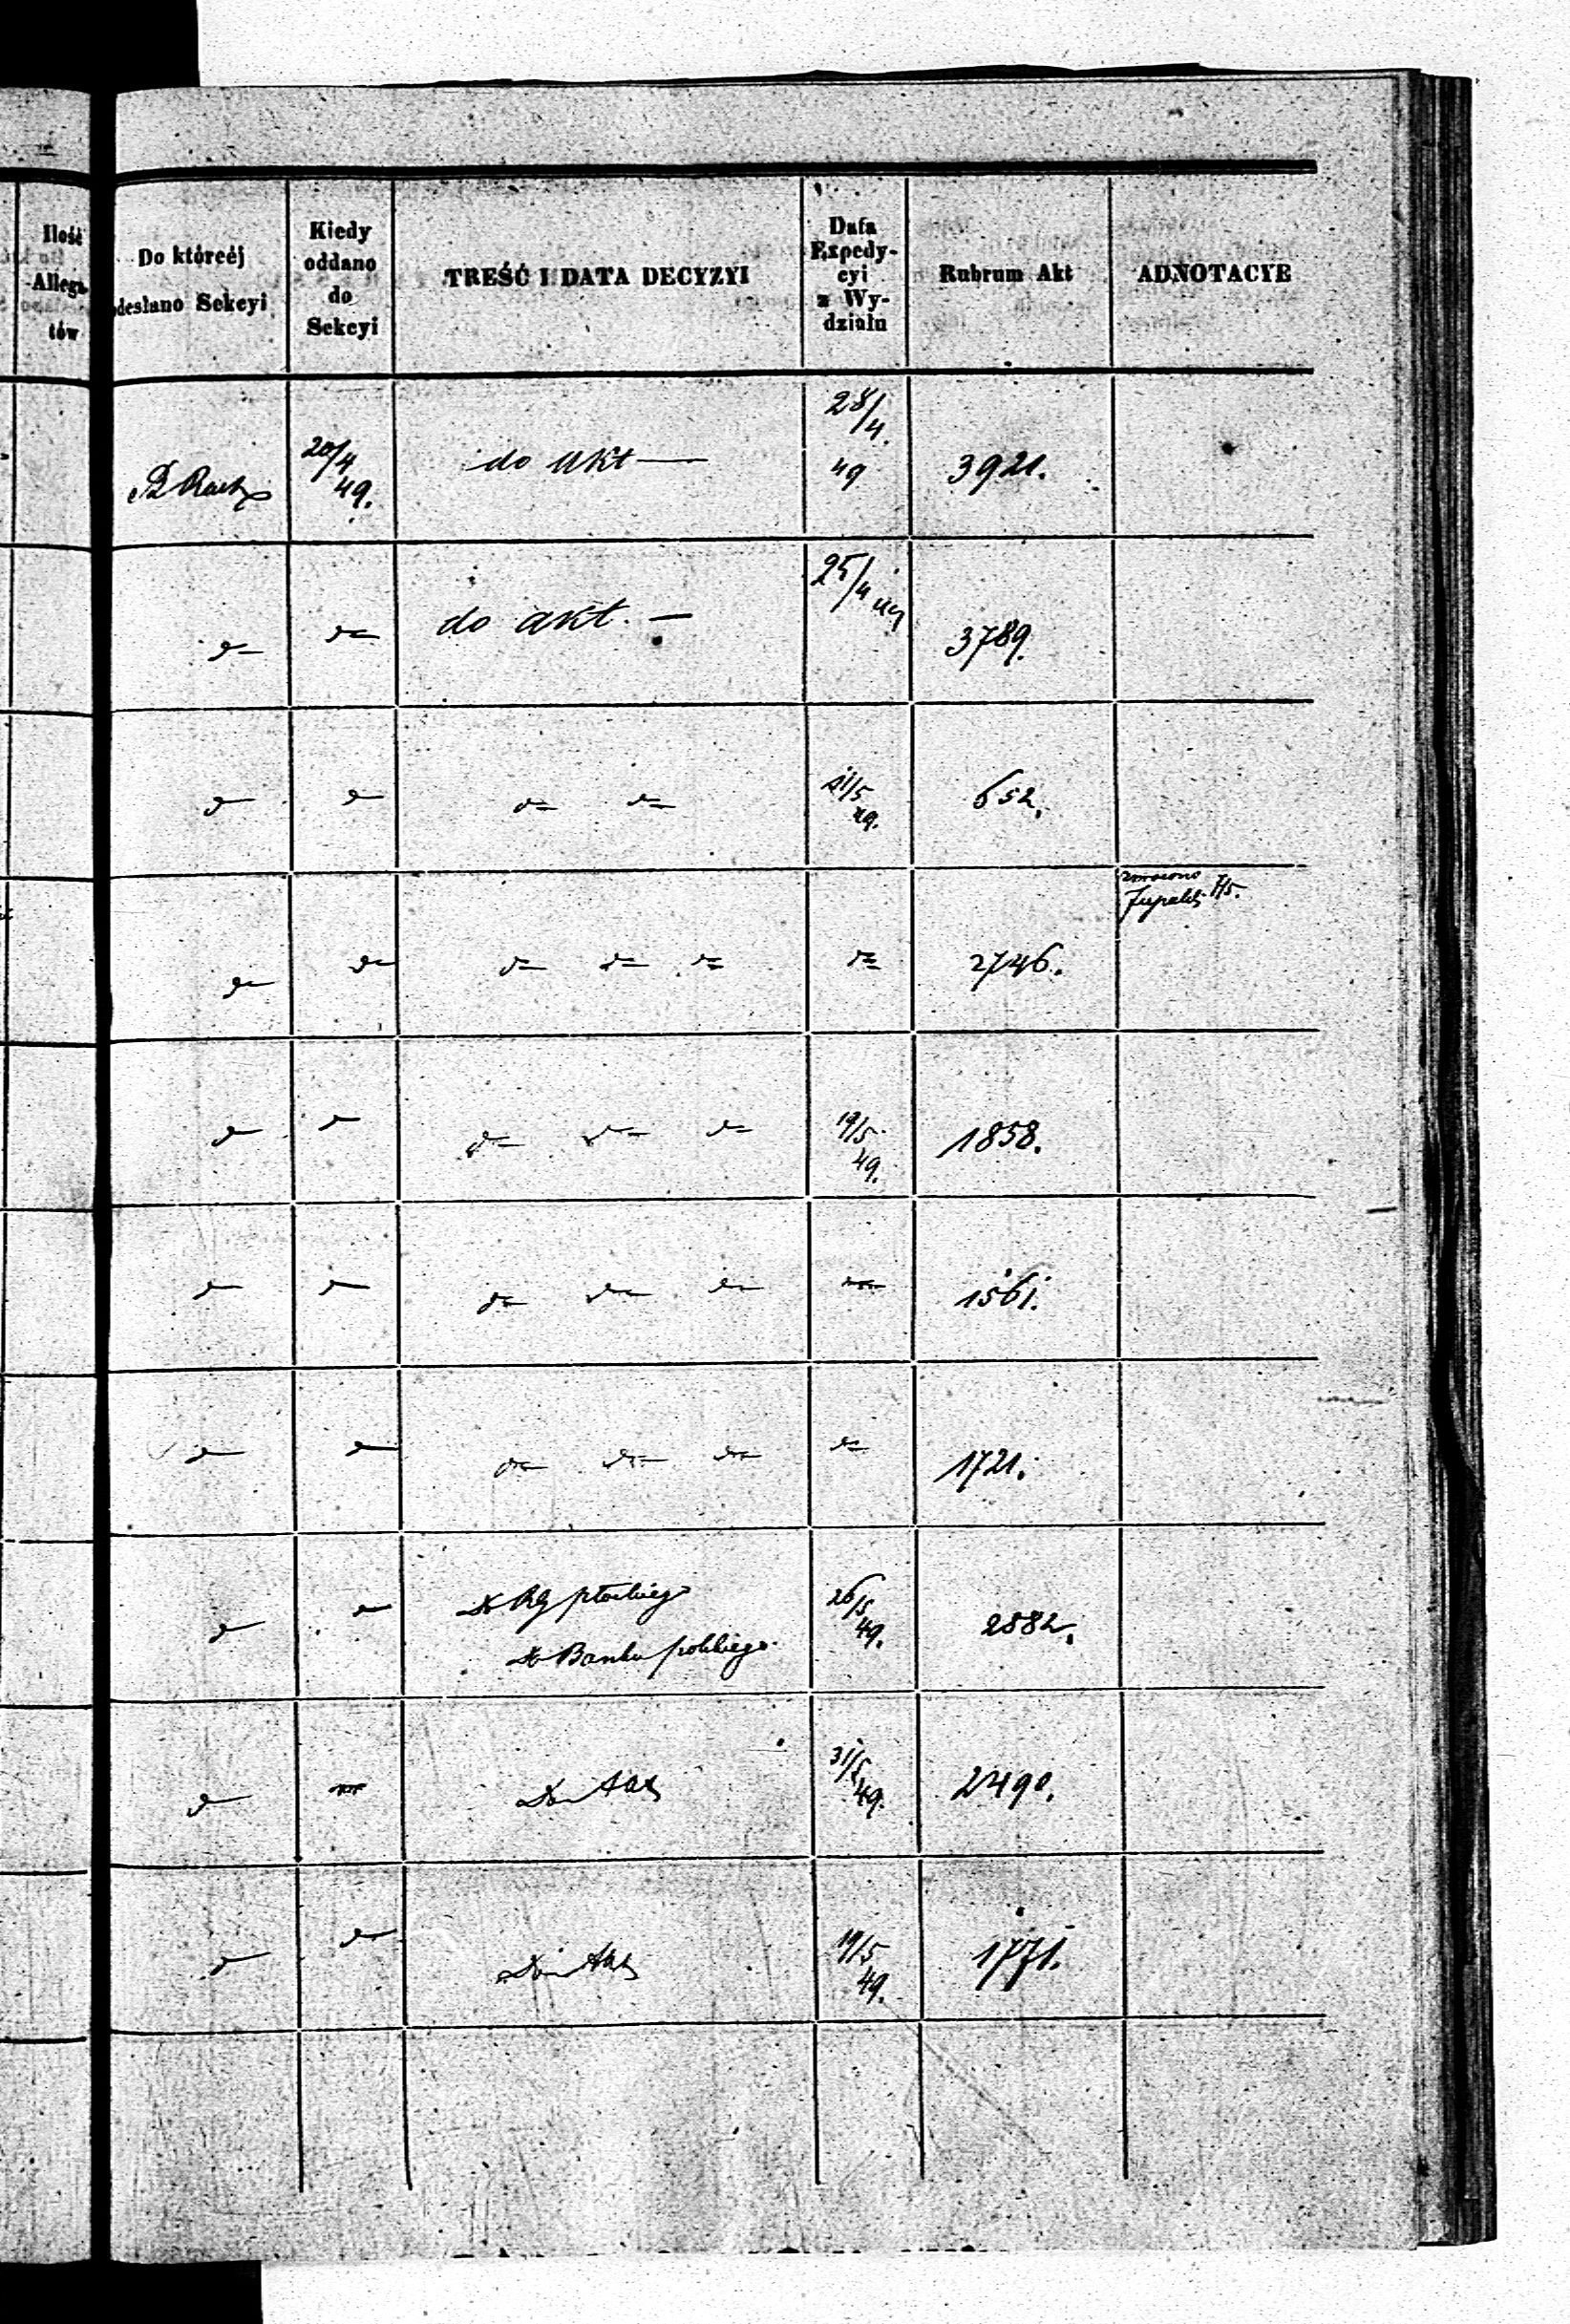 Ilość Allega- tów
Do któreéj odesłano Sekcyi
Kiedy oddano do Sekcyi
TREŚĆ I DATA DECYZYI
Data Expedy- cyi z Wy- działu
Rubrum Akt
ADNOTACYE
20/4 49. do akt — 28/4. 49 3921.
d° d° do akt. — 25/4 49 3789.
d° d° d° d° 21/5 49. 652.
zwrócono
d° d° d° d° d° d° 2746.
d° d° d° d° d° 19/5 49. 1858.
d° d° d° d° d° d° 1561.
d° d° d° d° d° d° 1721.
d° d° Do RG płockiego 26/5 49. 2882.
Do Banku polskiego.
d° d° Do Akt 31/5 49. 2490.
d° d° Do Akt 19/5 49. 1771.